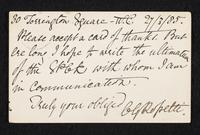 30 Torrington Square - W.C. 27/7/85.
Please accept a card of thanks. But
ere long I hope to write the ultimatum
of the S.P.C.K. with whom I am
in communication.
Truly your obliged
C G Rossetti